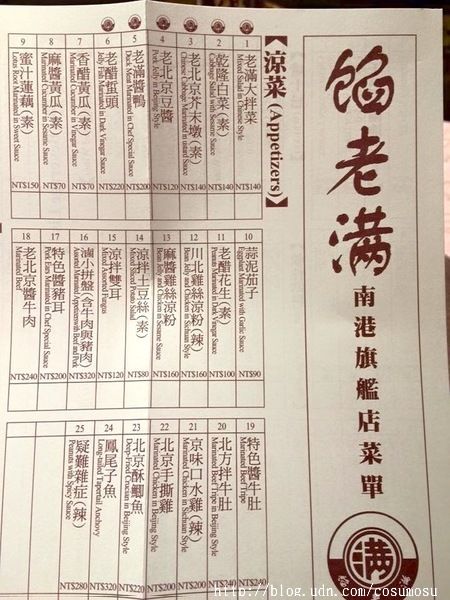 餡老滿
南港旗艦店菜單
滿
【涼菜(Appetizers)】
1
老滿大拌菜
NT$140
2
乾隆白菜(素)
NT$140
3
老北京芥末墩(素)
NT$140
4
老北京豆醬
NT$120
5
老滿醬鴨
Duck Meat Marinated in Chef Special Sauce
NT$200
6
老醋蜇頭
Jelly Fish Marinated in Dark Vinegar Sauce
NT$220
7
香醋黃瓜(素)
Marinated Cucumber in Vinegar Sauce
NT$70
8
麻醬黃瓜(素)
Marinated Cucumber in Sesame Sauce
NT$70
9
蜜汁蓮藕(素)
Lotus Root Marinated in Sweet Sauce
NT$150
10
蒜泥茄子
Eggplant Marinated with Garlic Sauce
NT$90
11
老醋花生(素)
Peanuts Marinated in Dark Vinegar Sauce
NT$100
12
川北雞絲涼粉(辣)
Bean Jelly and Chicken in Sichuan Style
NT$160
13
麻醬雞絲涼粉
Bean Jelly and Chicken in Sesame Sauce
NT$160
14
涼拌土豆絲(素)
Marinated Shredded Potato Salad
NT$80
15
涼拌雙耳
Marinated Assorted Fungus
NT$120
16
滷人拼盤(含牛肉與豬肉)
Assorted Marinated Appetizers with Beef and Pork
NT$320
17
特色醬豬耳
Pork Ears Marinated in Chef Special Sauce
NT$200
18
老北京醬牛肉
Marinated Beef
NT$240
19
特色醬牛肚
Marinated Beef Tripe
NT$240
20
北方拌牛肚
Marinated Beef Tripe in Beijing Style
NT$240
21
京味口水雞(辣)
Marinated Chicken in Sichuan Style
NT$200
22
北京手撕雞
Marinated Chicken in Beijing Style
NT$200
23
北京酥鯽魚
Deep-Fried Crucian in Beijing Style
NT$220
24
鳳尾子魚
Long-tailed Tapertail Anchovy
NT$320
25
疑難雜症(辣)
Peanuts with Spicy Sauce
NT$280
http://blog.udn.com/cosumosu